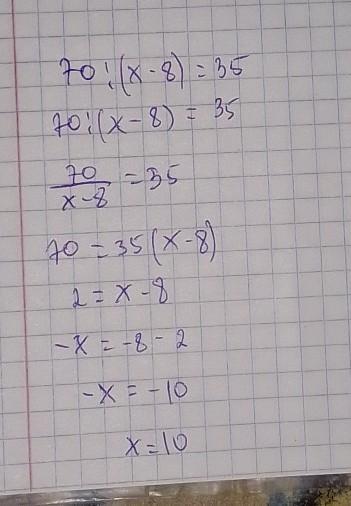 70:(x-8)=35
70:(x-8)=35
70/(x-8)=35
70=35(x-8)
2=x-8
-x=-8-2
-x=-10
x=10